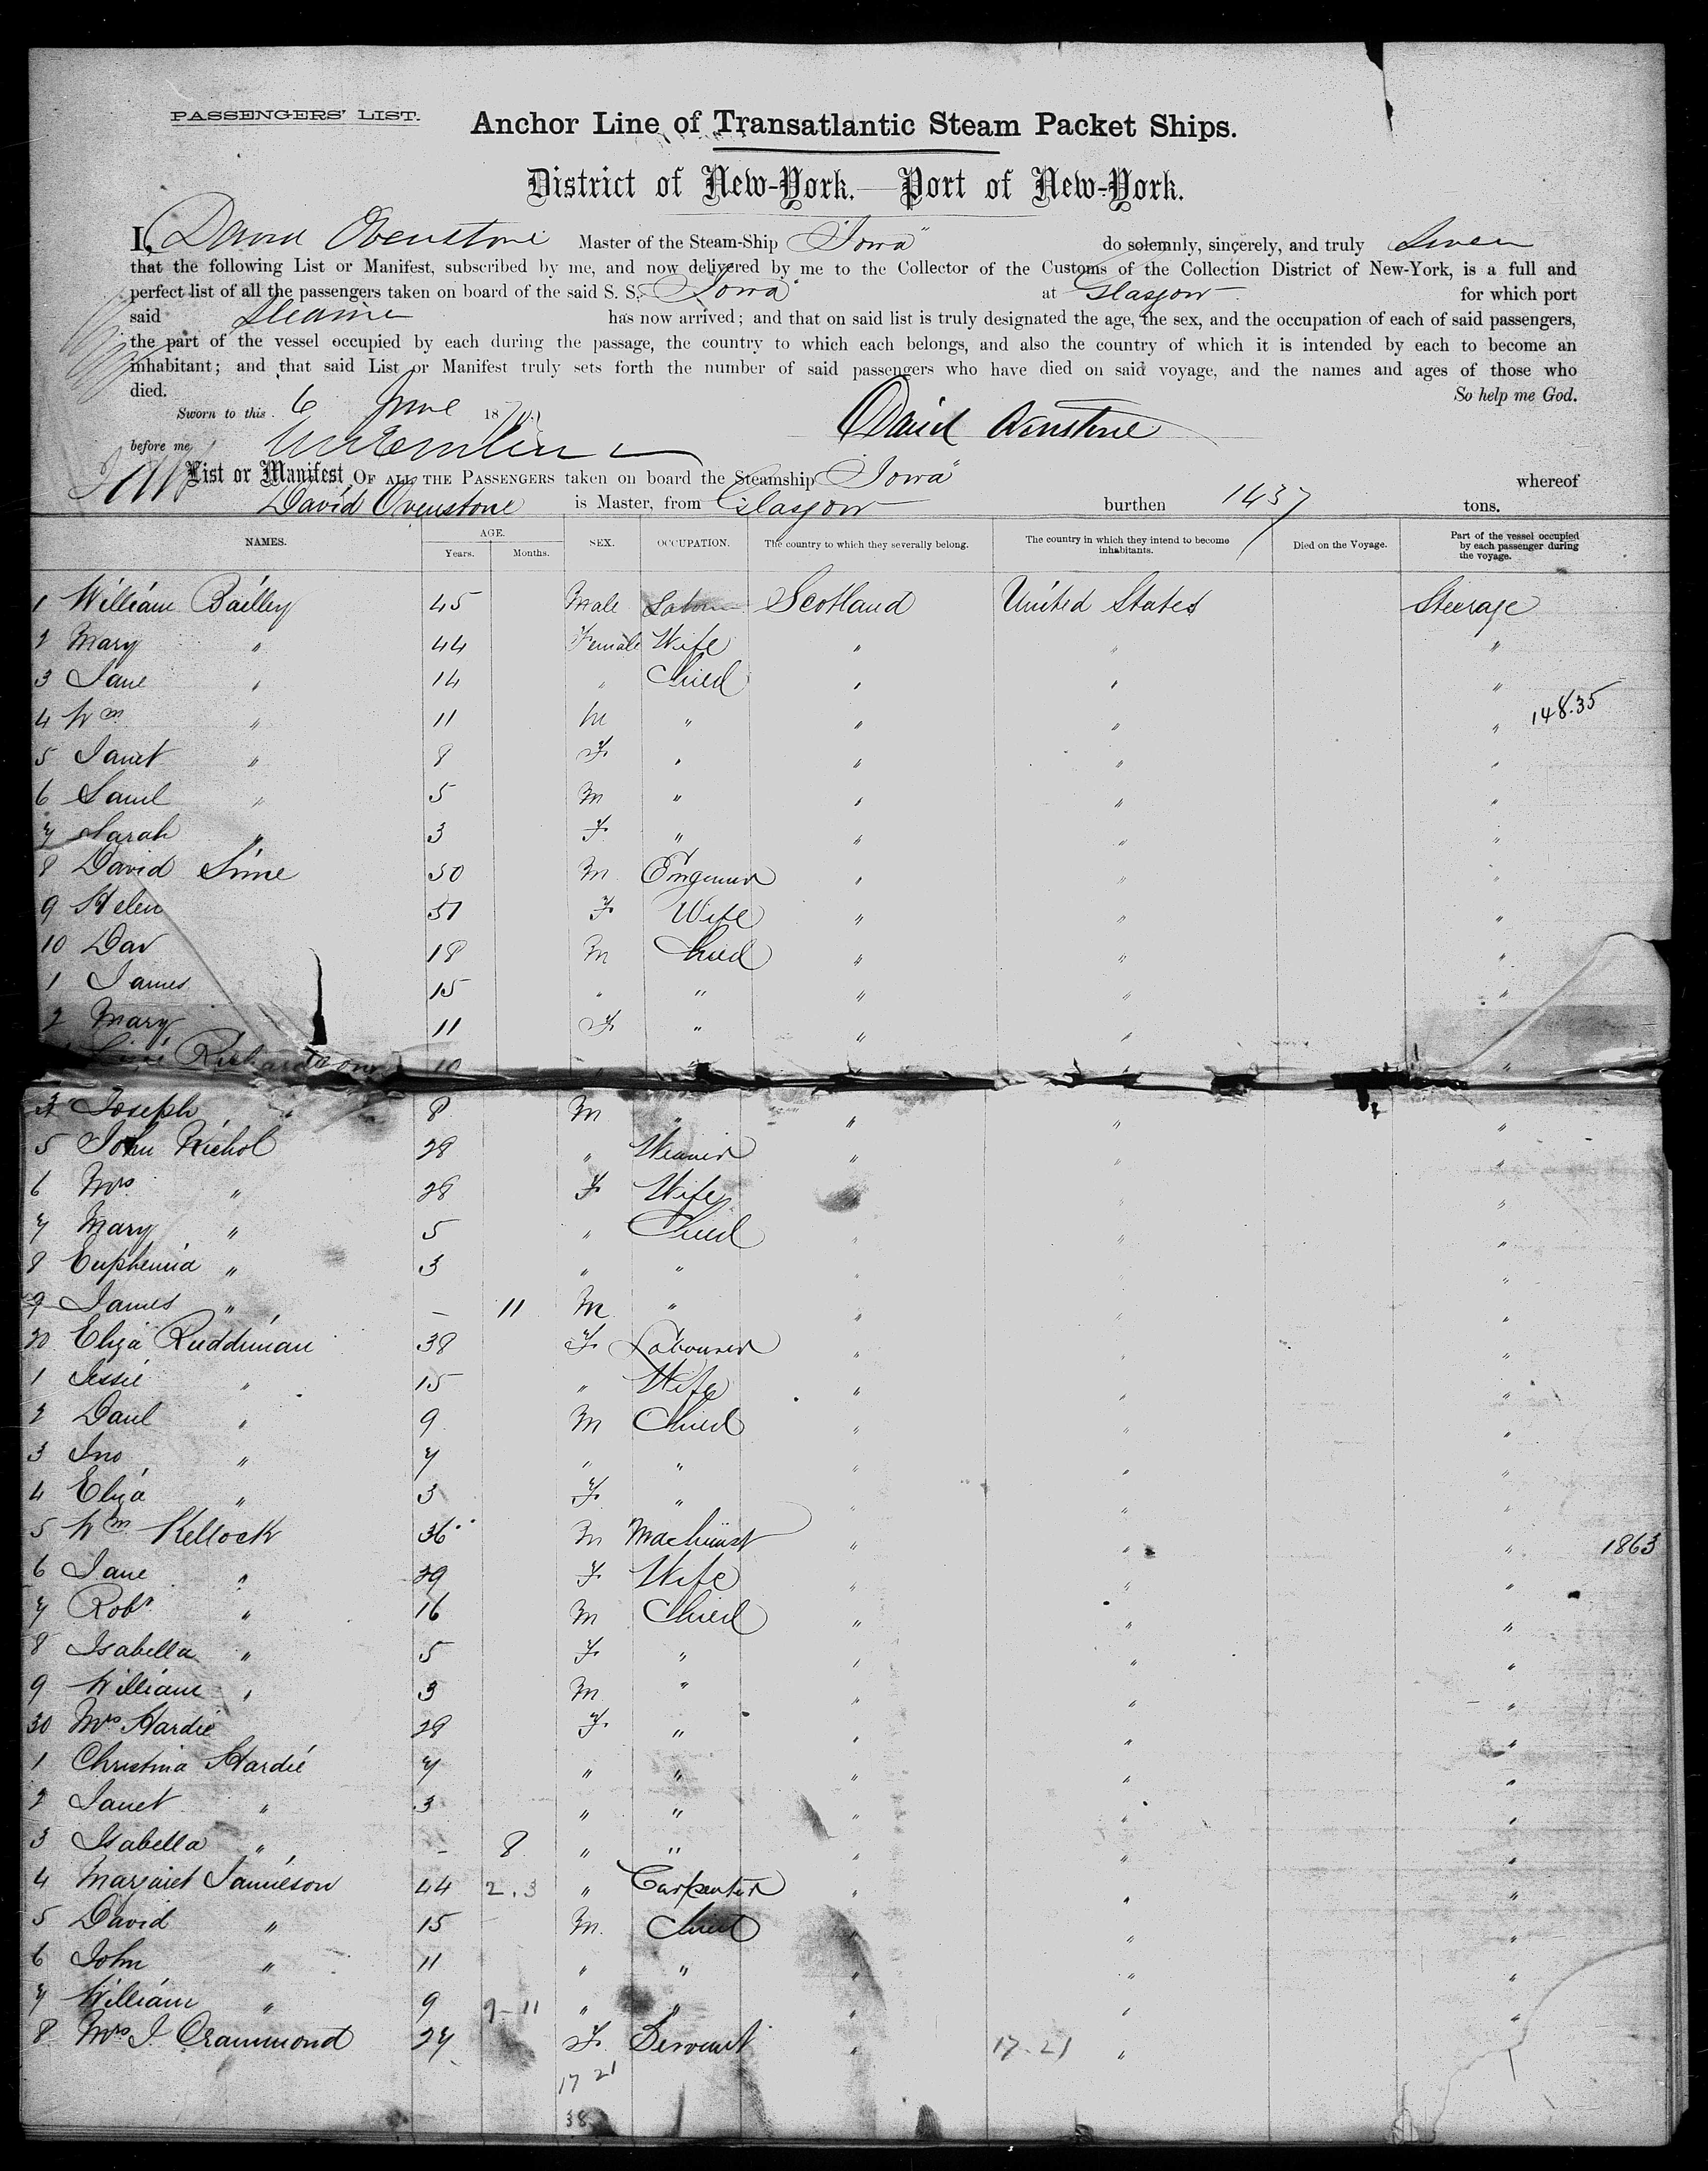 PASSENGERS' LIST.
Anchor Line of Transatlantic Steam Packet Ships.
District of New-York.—Port of New-York.
I, David Ovenstone Master of the Steam-Ship "Iowa" do solemnly, sincerely, and truly Swear
that the following List or Manifest, subscribed by me, and now delivered by me to the Collector of the Customs of the Collection District of New-York, is a full and
perfect list of all the passengers taken on board of the said S. S. "Iowa" at Glasgow for which port
said Steamer has now arrived; and that on said list is truly designated the age, the sex, and the occupation of each of said passengers,
the part of the vessel occupied by each during the passage, the country to which each belongs, and also the country of which it is intended by each to become an
inhabitant; and that said List or Manifest truly sets forth the number of said passengers who have died on said voyage, and the names and ages of those who
died. So help me God.
Sworn to this 6 June 1870
David Ovenstone
before me
List or Manifest OF ALL THE PASSENGERS taken on board the Steamship "Iowa" whereof
David Ovenstone is Master, from Glasgow burthen 1437 tons.
NAMES. AGE. Years. Months. SEX. OCCUPATION. The country to which they severally belong. The country in which they intend to become inhabitants. Died on the Voyage. Part of the vessel occupied by each passenger during the voyage.
1 William Bailley 45 Male Labourer Scotland United States Steerage
2 Mary " 44 Female Wife " " "
3 Jane " 14 " Child " " "
4 Wm " 11 M " " " " 148.35
5 Janet " 8 F " " " "
6 Saml " 5 M " " " "
7 Sarah " 3 F " " " "
8 David Sime 50 M Engineer " " "
9 Helen 51 F Wife " " "
10 Dav 18 M Child " " "
1 James 15 " " " " "
2 Mary 11 F " " " "
Richardson 10 " "
4 Joseph " 8 M " " " "
5 John Nichol 28 " Weaver " " "
6 Mrs " 28 F Wife " " "
7 Mary " 5 " Child " " "
8 Euphemia " 3 " " " " "
9 James " - 11 M " " " "
20 Eliza Ruddiman 38 F Labourer " " "
1 Jessie " 15 " Wife " " "
2 Danl " 9 M Child " " "
3 Jno " 7 " " " " "
4 Eliza " 3 F " " " "
5 Wm Kellock 36 M Machinist " " " 1863
6 Jane " 39 F Wife " " "
7 Robt " 16 M Child " " "
8 Isabella " 5 F " " " "
9 William " 3 M " " " "
30 Mrs Hardie 29 F " " " "
1 Christina Hardie 7 " " " " "
2 Janet " 3 " " " " "
3 Isabella " - 8 " " " " "
4 Margaret Jamieson 44 2.3 " Carpenter " " "
5 David " 15 M Child " " "
6 John " 11 " " " " "
7 William " 9 9-11 " " " " "
8 Mrs J. Crammond 27 F Servant " 17-21 "
17 21
38